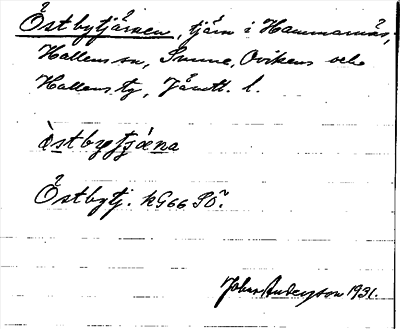 Östbytjärnen, tjärn i Hammarnäs,
Hallens sn, Sunne, Ovikens och
Hallens tg, Jämtl. l.
östbytjæna
Östbytj. KG66 SÖ.
John Anderzon 1931.